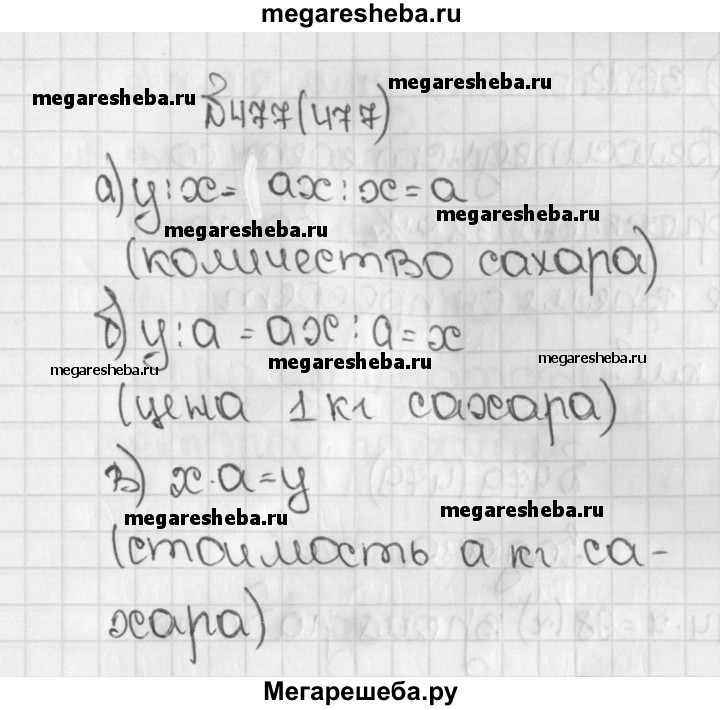 megaresheba.ru
megaresheba.ru
megaresheba.ru
№477(477)
а) у:х= ах:х=а
megaresheba.ru
megaresheba.ru
(количество сахара)
б) у:а = ах:а=х
megaresheba.ru
megaresheba.ru
megaresheba.ru
(цена 1 кг сахара)
в) х·а=у
megaresheba.ru
megaresheba.ru
(стоимость а кг са-
хара)
Мегарешеба.ру